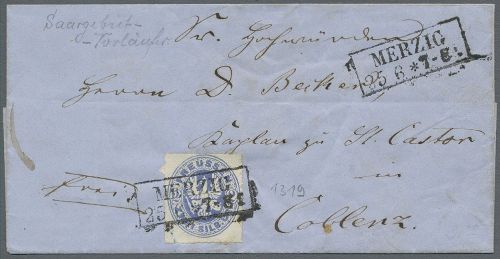 Saargebiet-
Vorläufer
Sr. Hochwürden
MERZIG
25 6 * 7-8
Herrn D. Becker
Kaplan zu St. Castor
in
Coblenz.
frei
1319
PREUSS
SILB
MERZIG
25 7-8